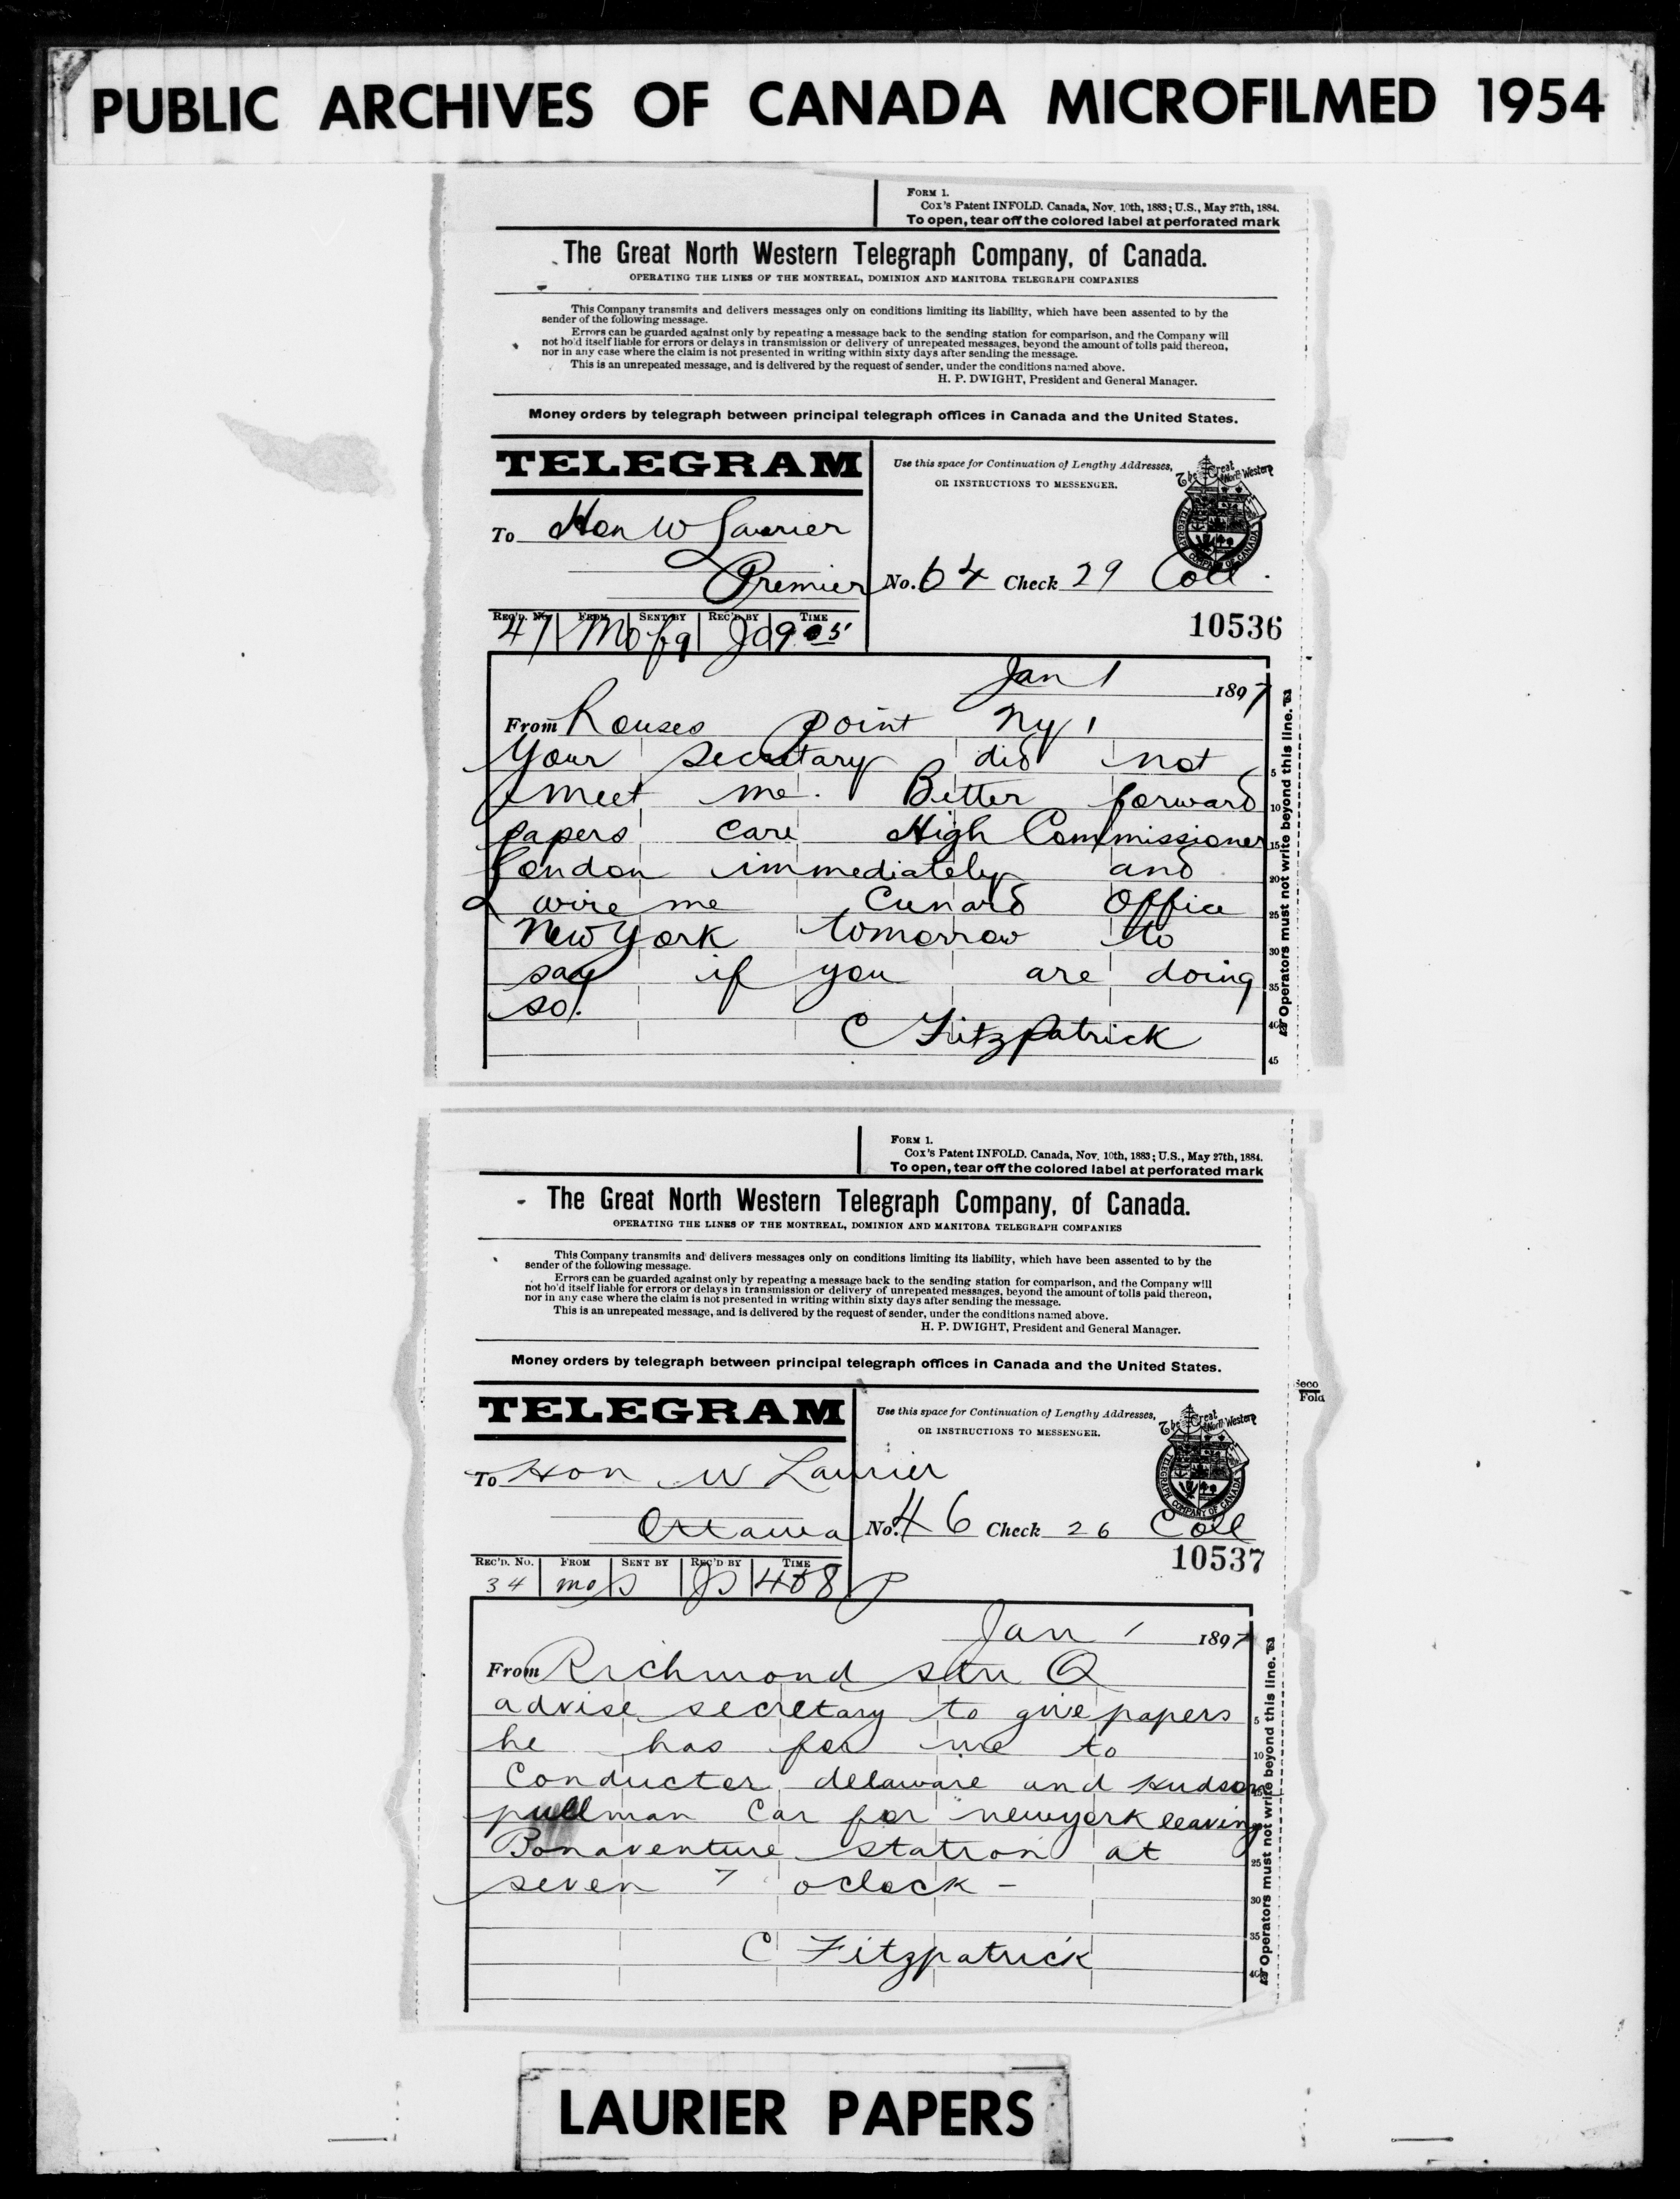 PUBLIC ARCHIVES OF CANADA MICROFILMED 1954
FORM 1.
Cox's Patent INFOLD. Canada, Nov. 10th, 1883; U.S., May 27th, 1884.
To open, tear off the colored label at perforated mark
The Great North Western Telegraph Company, of Canada.
OPERATING THE LINES OF THE MONTREAL, DOMINION AND MANITOBA TELEGRAPH COMPANIES
This Company transmits and delivers messages only on conditions limiting its liability, which have been assented to by the
sender of the following message.
Errors can be guarded against only by repeating a message back to the sending station for comparison, and the Company will
not ho'd itself liable for errors or delays in transmission or delivery of unrepeated messages, beyond the amount of tolls paid thereon,
nor in any case where the claim is not presented in writing within sixty days after sending the message.
This is an unrepeated message, and is delivered by the request of sender, under the conditions named above.
H. P. DWIGHT, President and General Manager.
Money orders by telegraph between principal telegraph offices in Canada and the United States.
TELEGRAM
Use this space for Continuation of Lengthy Addresses,
OR INSTRUCTIONS TO MESSENGER.
The Great North Western
TELEGRAPH COMPANY OF CANADA
To Hon W Laurier
Premier
No. 64 Check 29 Coll.
REC'D. No. FROM SENT BY REC'D BY TIME
47 Mo 9.05
10536
Jan 1 1897
From Rouses Point Ny
Your secretary did not
meet me. Better forward
papers care High Commissioner
London immediately and
wire me Cunard Office
New York tomorrow to
say if you are doing
so.
C Fitzpatrick
5
10
15
20
25
30
35
40
45
Operators must not write beyond this line.
FORM 1.
Cox's Patent INFOLD. Canada, Nov. 10th, 1883; U.S., May 27th, 1884.
To open, tear off the colored label at perforated mark
The Great North Western Telegraph Company, of Canada.
OPERATING THE LINES OF THE MONTREAL, DOMINION AND MANITOBA TELEGRAPH COMPANIES
This Company transmits and delivers messages only on conditions limiting its liability, which have been assented to by the
sender of the following message.
Errors can be guarded against only by repeating a message back to the sending station for comparison, and the Company will
not ho'd itself liable for errors or delays in transmission or delivery of unrepeated messages, beyond the amount of tolls paid thereon,
nor in any case where the claim is not presented in writing within sixty days after sending the message.
This is an unrepeated message, and is delivered by the request of sender, under the conditions named above.
H. P. DWIGHT, President and General Manager.
Money orders by telegraph between principal telegraph offices in Canada and the United States.
Seco
Fold
TELEGRAM
Use this space for Continuation of Lengthy Addresses,
OR INSTRUCTIONS TO MESSENGER.
The Great North Western
TELEGRAPH COMPANY OF CANADA
To Hon W Laurier
Ottawa
No. 46 Check 26 Coll
REC'D. No. FROM SENT BY REC'D BY TIME
34 mo 408 P
10537
Jan 1 1897
From Richmond stn Q
advise secretary to give papers
he has for me to
Conducter delaware and Hudson
pullman Car for newyork leaving
Bonaventure station at
seven 7 oclock -
C Fitzpatrick
5
10
25
30
35
40
Operators must not write beyond this line.
LAURIER PAPERS